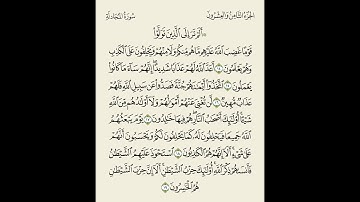 الجزء الثامن والعشرون
سورة المجادلة
۞ أَلَمْ تَرَ إِلَى الَّذِينَ تَوَلَّوْا
قَوْمًا غَضِبَ اللَّهُ عَلَيْهِم مَّا هُم مِّنكُمْ وَلَا مِنْهُمْ وَيَحْلِفُونَ عَلَى الْكَذِبِ
وَهُمْ يَعْلَمُونَ ١٤ أَعَدَّ اللَّهُ لَهُمْ عَذَابًا شَدِيدًا إِنَّهُمْ سَاءَ مَا كَانُوا
يَعْمَلُونَ ١٥ اتَّخَذُوا أَيْمَانَهُمْ جُنَّةً فَصَدُّوا عَن سَبِيلِ اللَّهِ فَلَهُمْ
عَذَابٌ مُّهِينٌ ١٦ لَّن تُغْنِيَ عَنْهُمْ أَمْوَالُهُمْ وَلَا أَوْلَادُهُم مِّنَ اللَّهِ
شَيْئًا أُولَٰئِكَ أَصْحَابُ النَّارِ هُمْ فِيهَا خَالِدُونَ ١٧ يَوْمَ يَبْعَثُهُمُ
اللَّهُ جَمِيعًا فَيَحْلِفُونَ لَهُ كَمَا يَحْلِفُونَ لَكُمْ وَيَحْسَبُونَ أَنَّهُمْ
عَلَىٰ شَيْءٍ أَلَا إِنَّهُمْ هُمُ الْكَاذِبُونَ ١٨ اسْتَحْوَذَ عَلَيْهِمُ الشَّيْطَانُ
فَأَنسَاهُمْ ذِكْرَ اللَّهِ أُولَٰئِكَ حِزْبُ الشَّيْطَانِ أَلَا إِنَّ حِزْبَ الشَّيْطَانِ
هُمُ الْخَاسِرُونَ ١٩